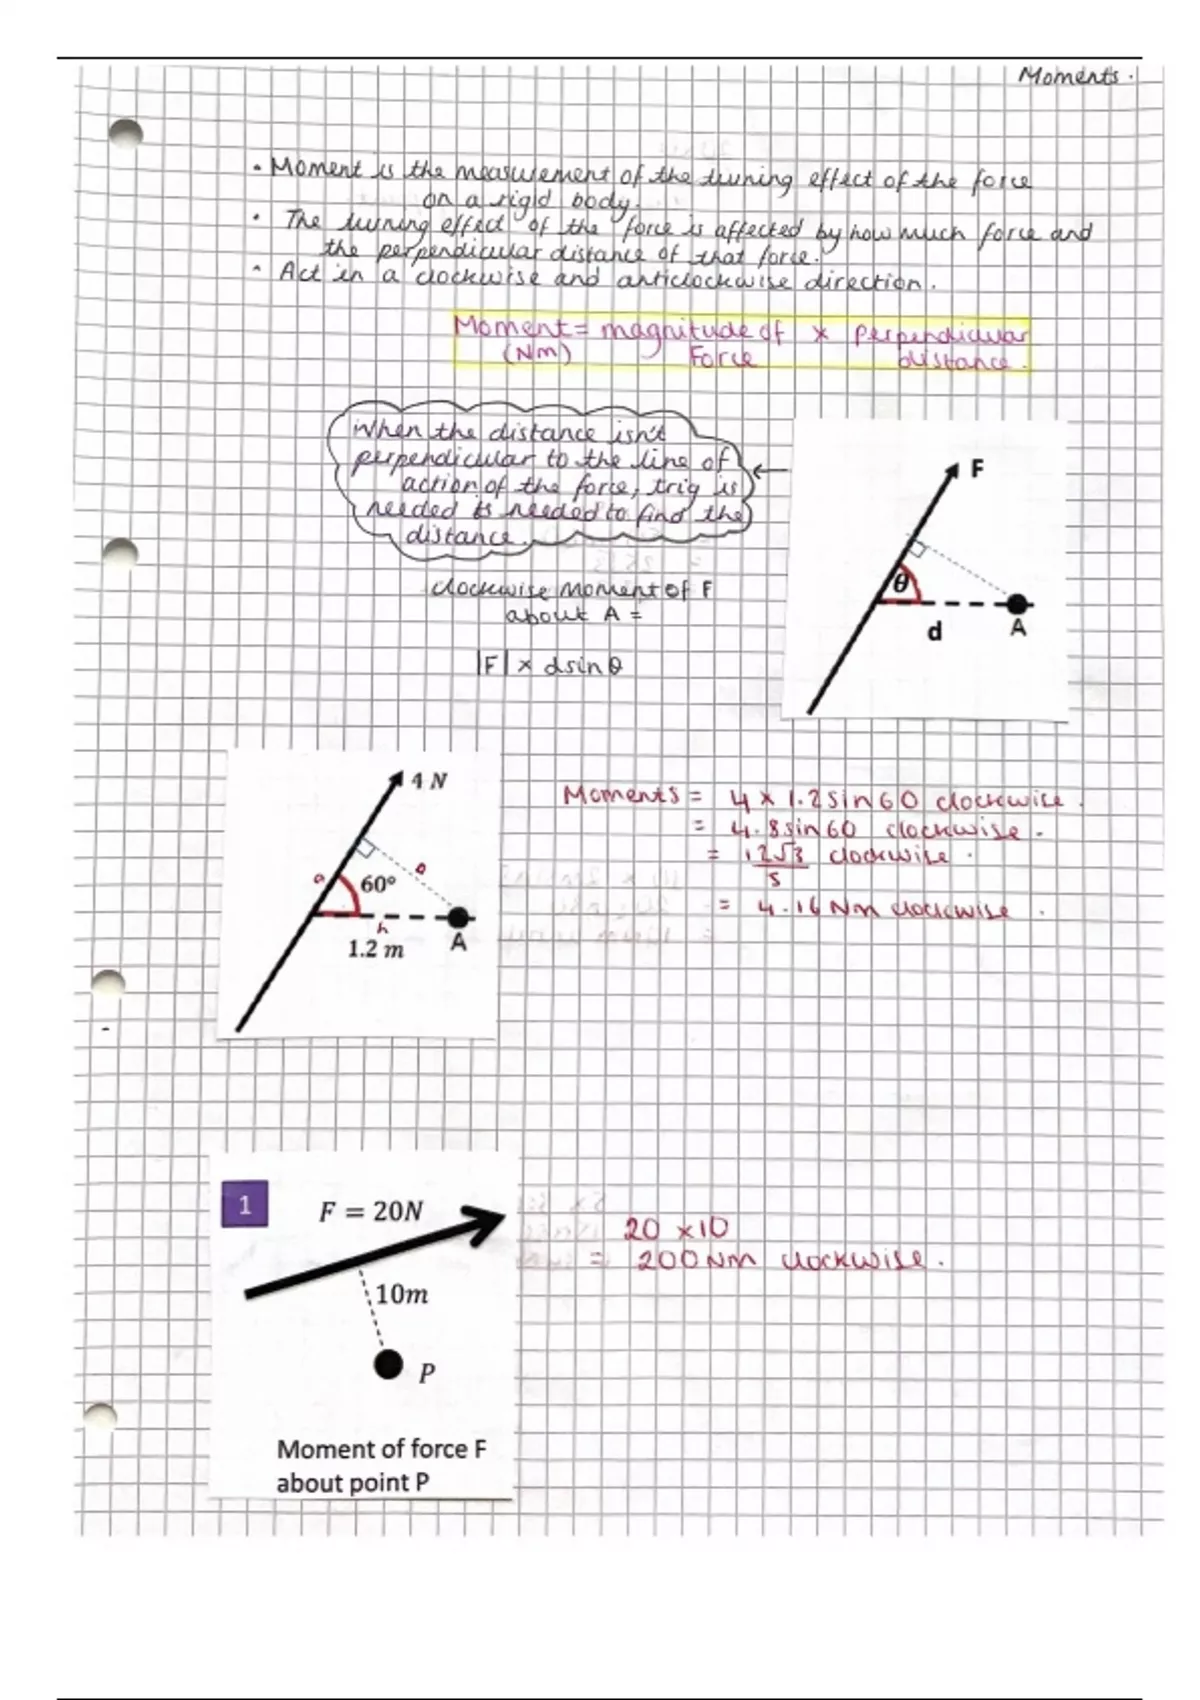 Moments.
• Moment is the measurement of the turning effect of the force
on a rigid body.
• The turning effect of the force is affected by how much force and
the perpendicular distance of that force.
• Act in a clockwise and anticlockwise direction.
Moment = magnitude of × perpendicular
(Nm) Force distance.
When the distance isn't
perpendicular to the line of
action of the force, trig is
needed is needed to find the
distance.
F
θ
d
A
clockwise moment of F
about A =
|F| × dsinθ
4 N
60°
o
a
h
1.2 m
A
Moments = 4 × 1.2sin60 clockwise.
= 4.8sin60 clockwise.
= 12√3/5 clockwise.
= 4.16 Nm clockwise.
1
F = 20N
10m
P
Moment of force F
about point P
20 × 10
= 200Nm clockwise.